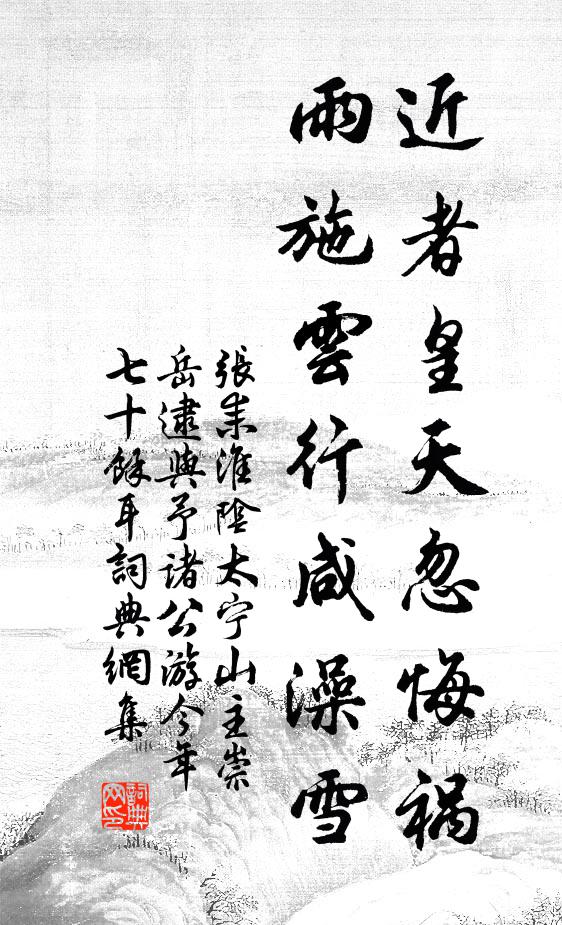 近者皇天忽悔祸
雨施雲行咸澡雪
張耒淮陰太宁山主崇
岳逮與予诸公游今年
七十餘耳詞典網集
詞典网印